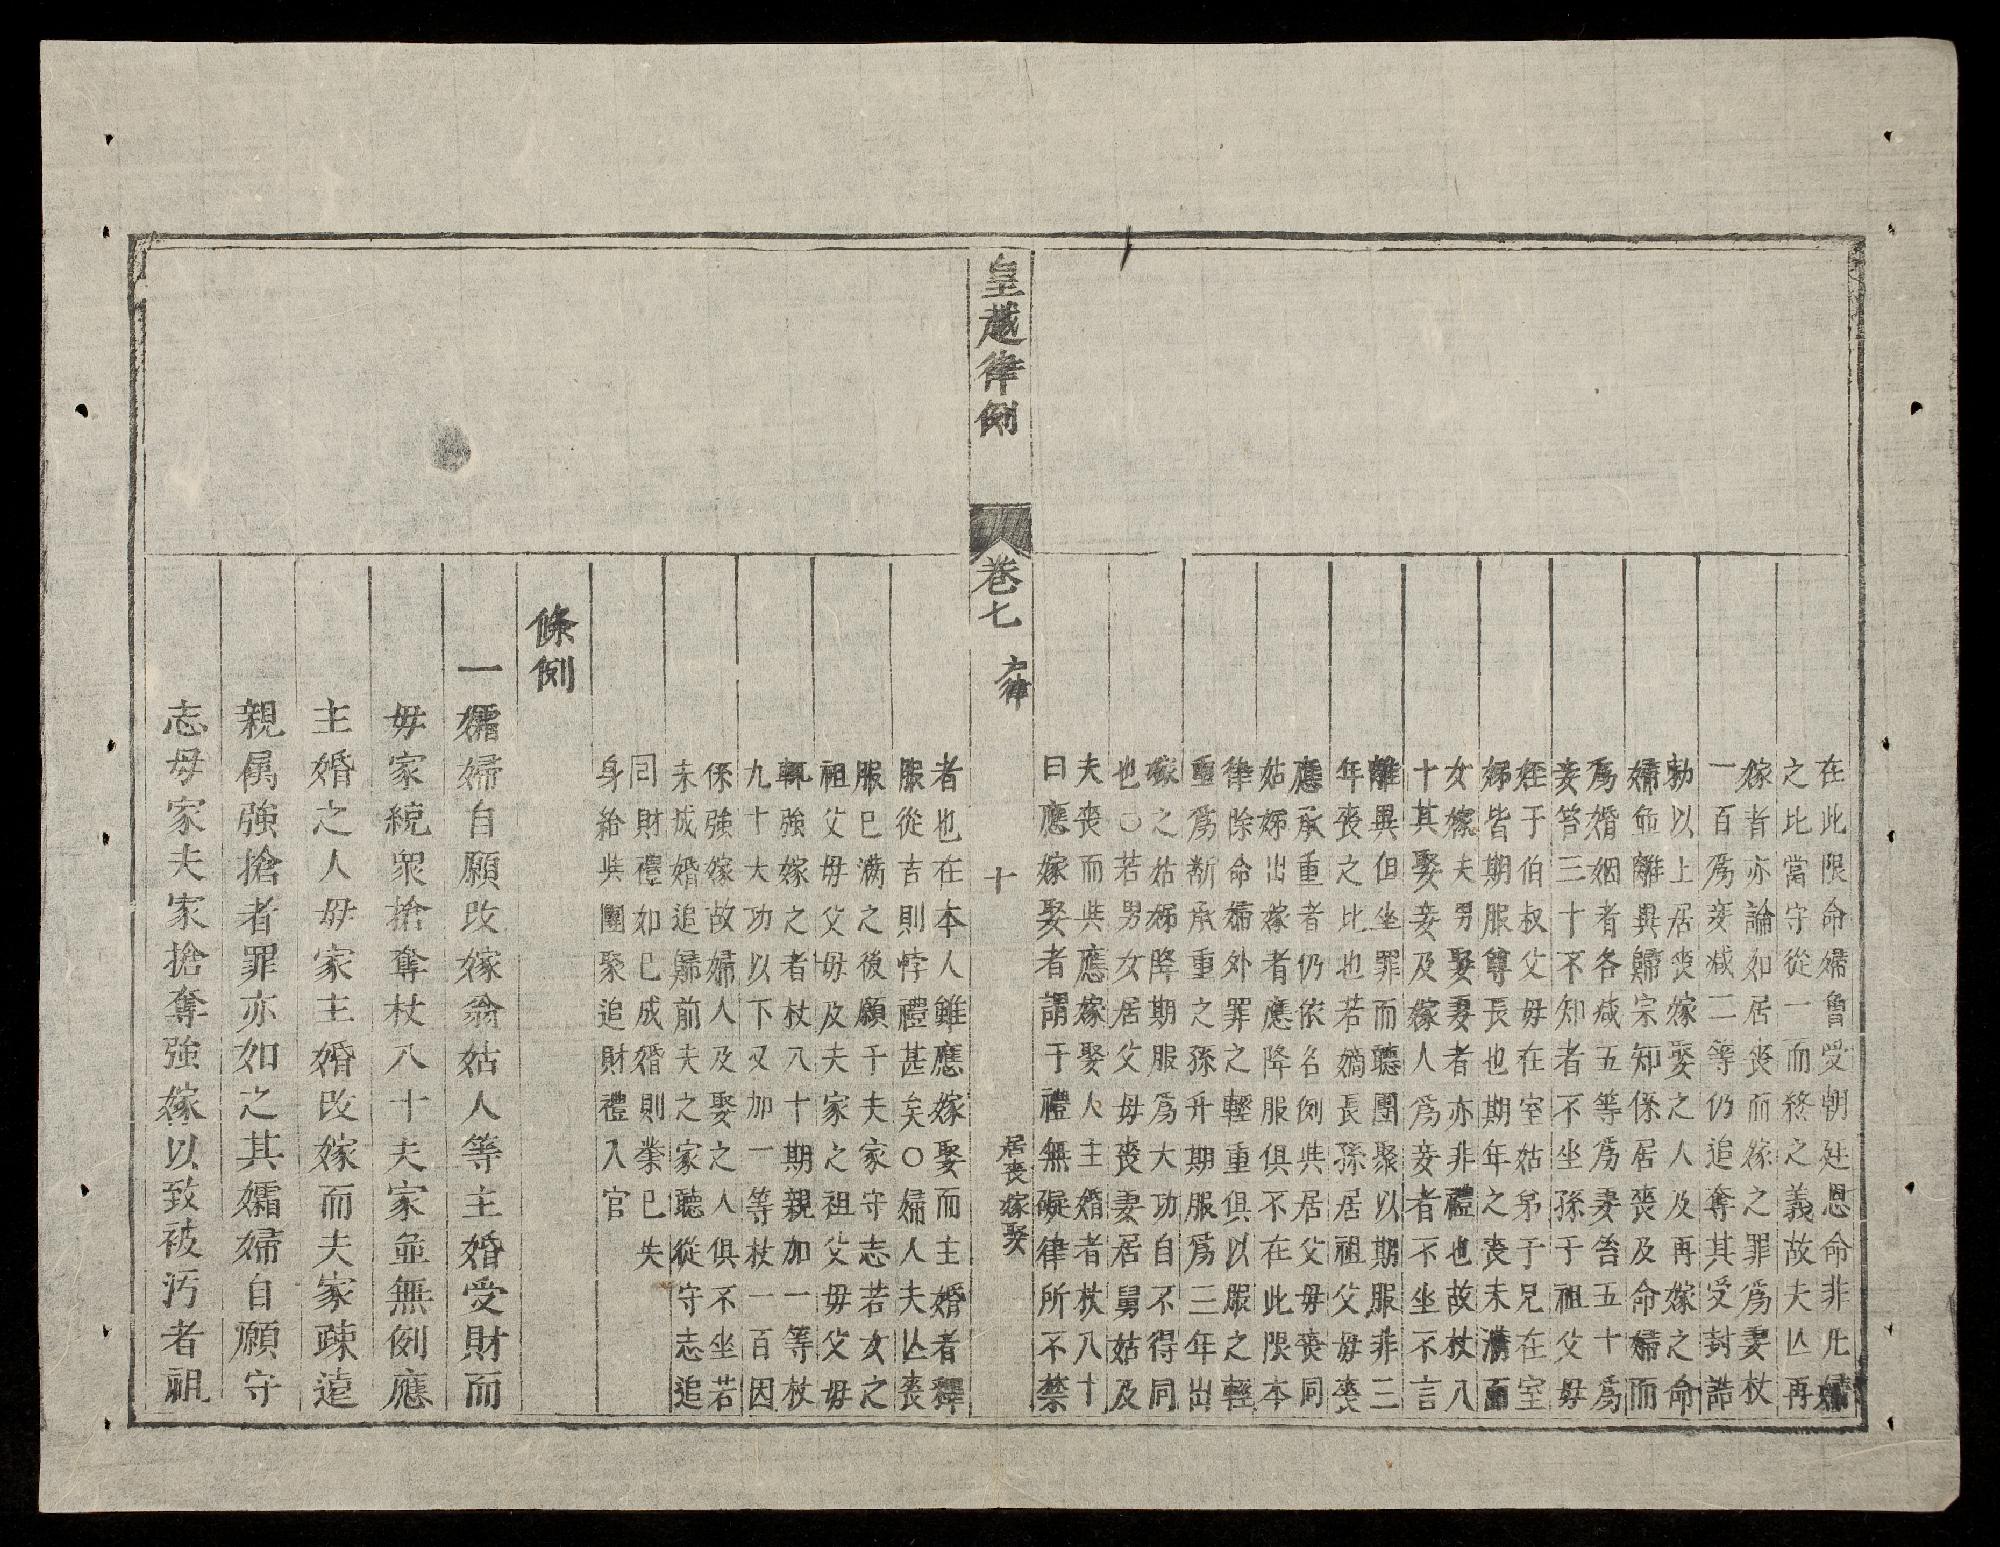 在此限命婦曾受朝廷恩命非凡婦
之比當守從一而終之義故夫亾再
嫁者亦論如居喪而嫁之罪爲妻杖
一百爲妾减二等仍追奪其受封誥
勅以上居喪嫁娶之人及再嫁之命
婦並離異歸宗知係居喪及命婦而
爲婚姻者各减五等爲妻笞五十爲
妾笞三十不知者不坐孫于祖父母
姪于伯叔父母在室姑弟于兄在室
姊皆期服尊長也期年之喪未滿而
女嫁夫男娶妻者亦非禮也故杖八
十其娶妾及嫁人爲妾者不坐不言
離異但坐罪而聽團聚以期服非三
年喪之比也若嫡長孫居祖父母喪
應承重者仍依名例與居父母喪同
姑姊出嫁者應降服俱不在此限本
律除命婦外罪之輕重俱以服之輕
重爲斷承重之孫升期服爲三年出
嫁之姑姊降期服爲大功自不得同
也○若男女居父母喪妻居舅姑及
夫喪而與應嫁娶人主婚者杖八十
曰應嫁娶者謂于禮無礙律所不禁
皇越律例
卷七 户律
十
居喪嫁娶
者也在本人雖應嫁娶而主婚者釋
服從吉則悖禮甚矣○婦人夫亾喪
服已满之後願于夫家守志若女之
祖父母父母及夫家之祖父母父母
輒強嫁之者杖八十期親加一等杖
九十大功以下又加一等杖一百因
係強嫁故婦人及娶之人俱不坐若
未成婚追歸前夫之家聽從守志追
囘財禮如已成婚則業已失
身給與團聚追財禮入官
條例
一孀婦自願改嫁翁姑人等主婚受財而
母家統衆搶奪杖八十夫家並無例應
主婚之人母家主婚改嫁而夫家疎遠
親属強搶者罪亦如之其孀婦自願守
志母家夫家搶奪強嫁以致被污者祖